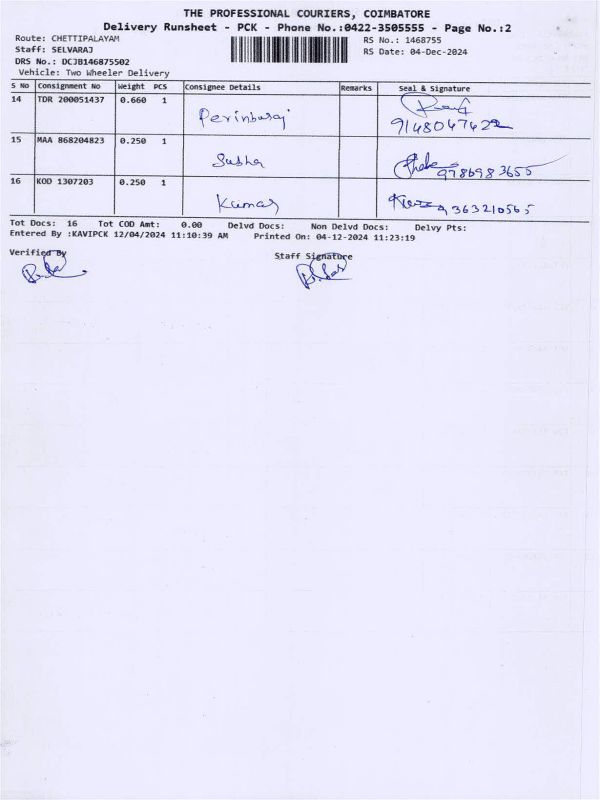 THE PROFESSIONAL COURIERS, COIMBATORE
Delivery Runsheet - PCK - Phone No.:0422-3505555 - Page No.:2
Route: CHETTIPALAYAM RS No.: 1468755
Staff: SELVARAJ RS Date: 04-Dec-2024
DRS No.: DCJB146875502
Vehicle: Two Wheeler Delivery
S No Consignment No Weight PCS Consignee Details Remarks Seal & Signature
14 TDR 200051437 0.660 1
Perinbaraj 9148047422
15 MAA 868204823 0.250 1
Susha 9786983655
16 KOD 1307203 0.250 1
Kumar 9363210565
Tot Docs: 16 Tot COD Amt: 0.00 Delvd Docs: Non Delvd Docs: Delvy Pts:
Entered By :KAVIPCK 12/04/2024 11:10:39 AM Printed On: 04-12-2024 11:23:19
Verified By Staff Signature